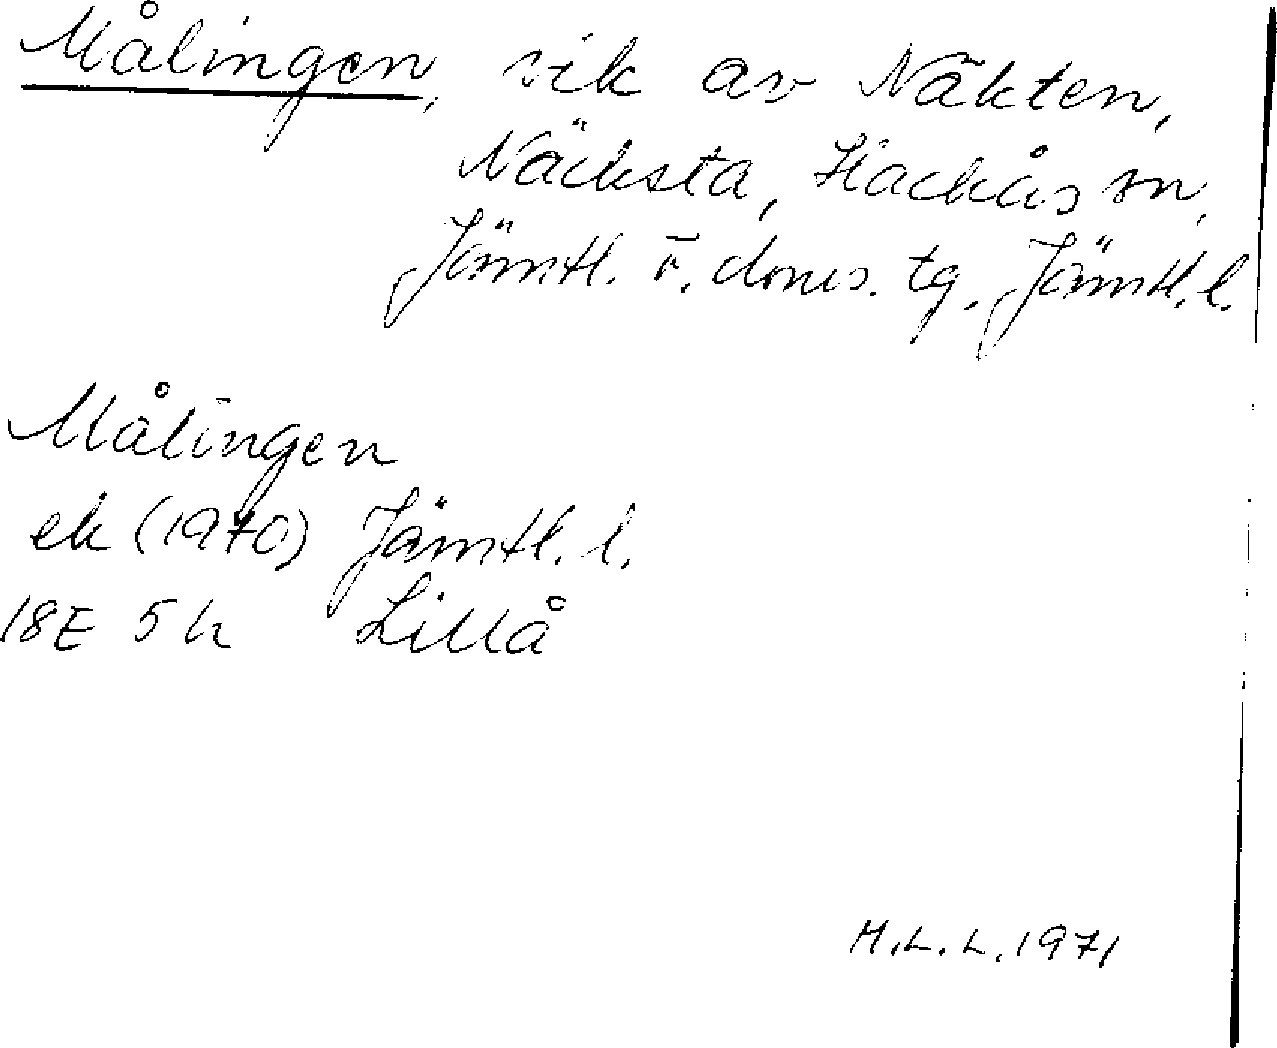 Målingen, vik av Näkten,
Näcksta, Hackås sn,
Jämtl. v. doms. tg, Jämtl. l.
Målingen
ek (1970) Jämtl. l.
18E 5h Lillå
H.L.L. 1971